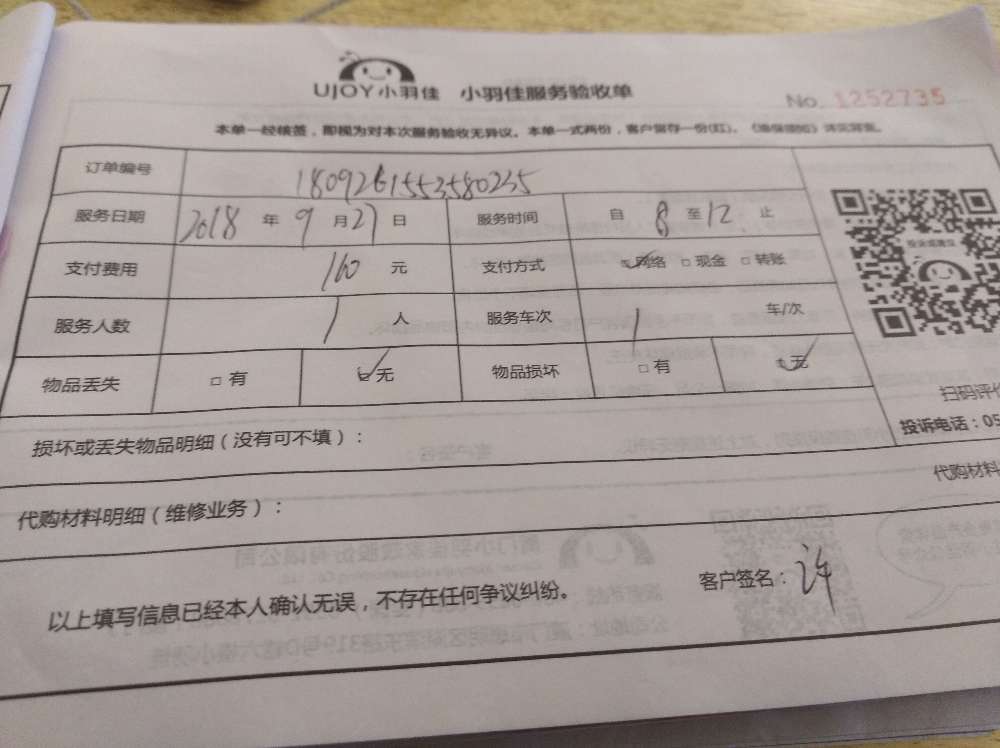 UJOY小羽佳 小羽佳服务验收单
No. 1252735
本单一经核签，即视为对本次服务验收无异议。本单一式两份，客户留存一份(红)。
订单编号 1809261553580235
服务日期 2018 年 9 月 27 日 服务时间 自 8 至 12 止
支付费用 160 元 支付方式 ☑网络 □现金 □转账
服务人数 1 人 服务车次 1 车/次
物品丢失 □有 ☑无 物品损坏 □有 ☑无
投诉或建议
扫码评价
投诉电话：05
损坏或丢失物品明细（没有可不填）：
代购材料明细（维修业务）： 代购材料
以上填写信息已经本人确认无误，不存在任何争议纠纷。 客户签名：许